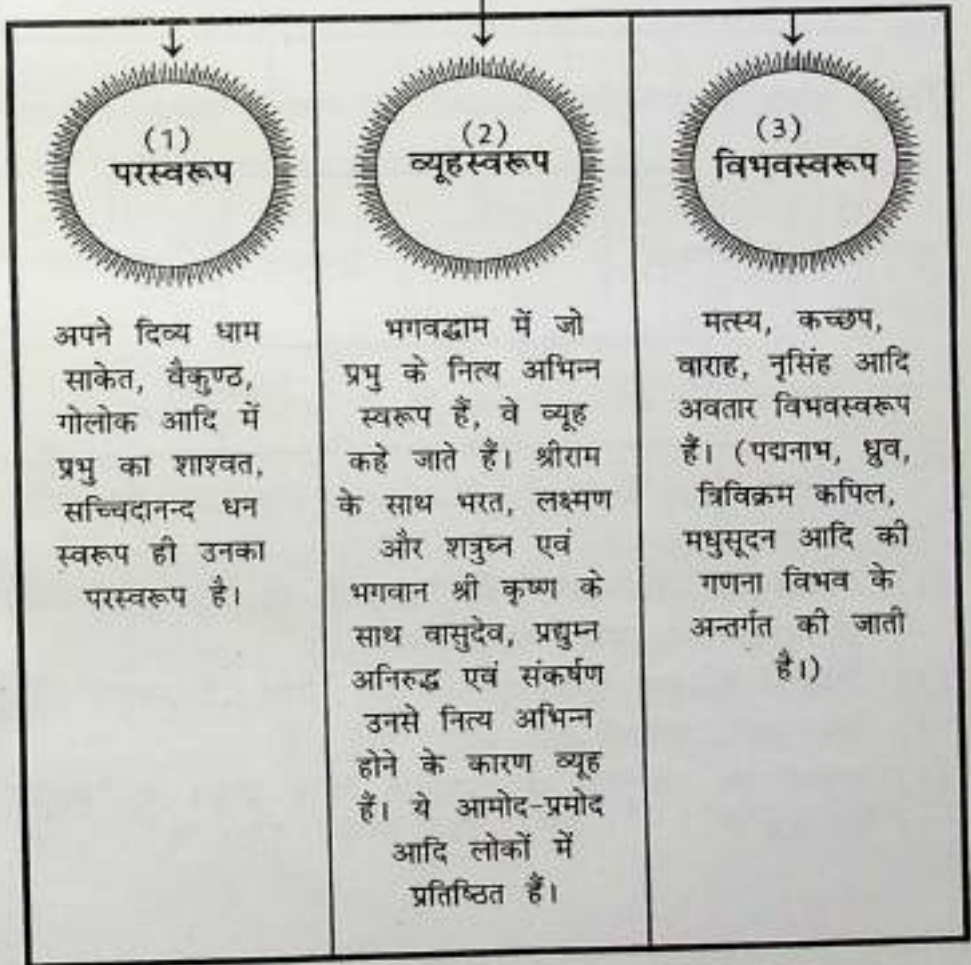 (1)
परस्वरूप
अपने दिव्य धाम
साकेत, वैकुण्ठ,
गोलोक आदि में
प्रभु का शाश्वत,
सच्चिदानन्द धन
स्वरूप ही उनका
परस्वरूप है।
(2)
व्यूहस्वरूप
भगवद्धाम में जो
प्रभु के नित्य अभिन्न
स्वरूप हैं, वे व्यूह
कहे जाते हैं। श्रीराम
के साथ भरत, लक्ष्मण
और शत्रुघ्न एवं
भगवान श्री कृष्ण के
साथ वासुदेव, प्रद्युम्न
अनिरुद्ध एवं संकर्षण
उनसे नित्य अभिन्न
होने के कारण व्यूह
हैं। ये आमोद-प्रमोद
आदि लोकों में
प्रतिष्ठित हैं।
(3)
विभवस्वरूप
मत्स्य, कच्छप,
वाराह, नृसिंह आदि
अवतार विभवस्वरूप
हैं। (पद्मनाभ, ध्रुव,
त्रिविक्रम कपिल,
मधुसूदन आदि की
गणना विभव के
अन्तर्गत की जाती
है।)